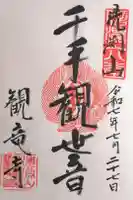 令和七年七月二十七日
千手観世音
観竜寺